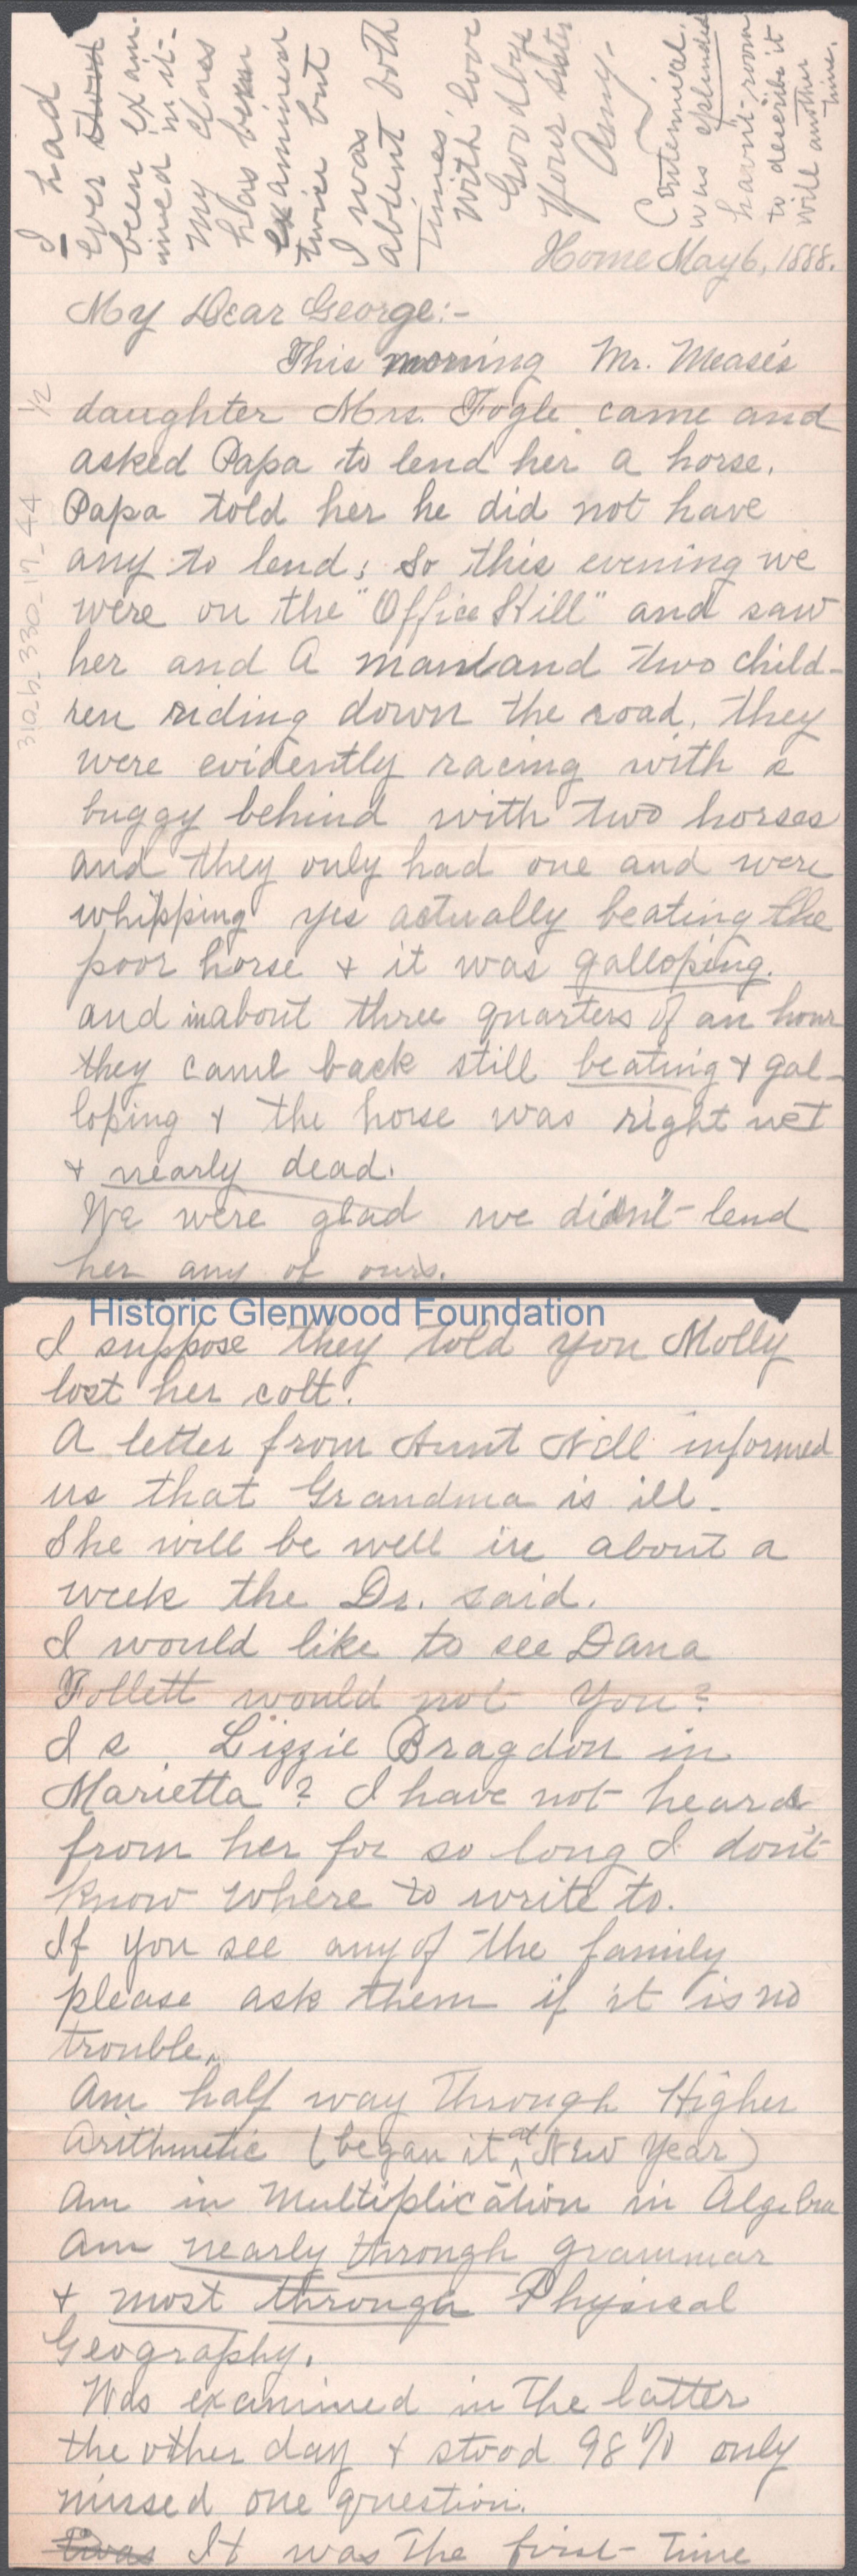 Home May 6, 1888.
My Dear George:-
This morning Mr. Mease's
daughter Mrs. Fogle came and
asked Papa to lend her a horse.
Papa told her he did not have
any to lend; So this evening we
were on the "Office Hill" and saw
her and a man and two child-
ren riding down the road, they
were evidently racing with a
buggy behind with two horses
and they only had one and were
whipping yes actually beating the
poor horse & it was galloping.
and in about three quarters of an hour
they came back still beating & gal-
loping & the horse was right wet
& nearly dead.
We were glad we didn't lend
her any of ours.
Historic Glenwood Foundation
I suppose they told you Molly
lost her colt.
A letter from Aunt Nell informed
us that Grandma is ill.
She will be well in about a
week the Dr. said.
I would like to see Dana
Follett would not you?
Is Lizzie Bragdon in
Marietta? I have not heard
from her for so long I don't
know where to write to.
If you see any of the family
please ask them if it is no
trouble.
Am half way through Higher
Arithmetic (began it at New Year)
Am in Multiplication in Algebra
Am nearly through grammar
& most through Physical
Geography.
Was examined in the latter
the other day & stood 98% only
missed one question.
Twas It was the first time
I had
ever stood
been exam-
ined in it-
My class
has been
examined
twice but
I was
absent both
times.
With love
Goodbye
Your sister
Amy.
Centennial
was splendid
havn't room
to describe it
will another
time.
1/2
31a_b_330_17_44